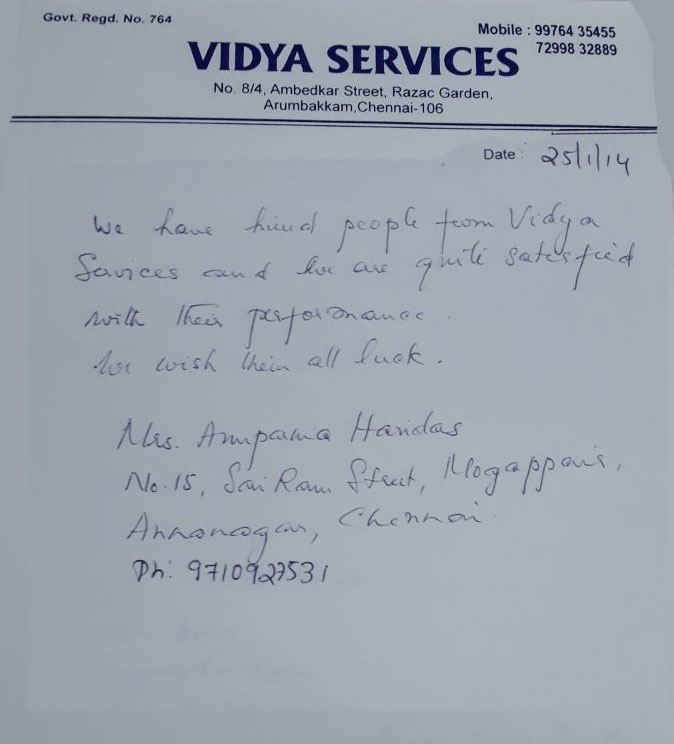 Govt. Regd. No. 764
Mobile : 99764 35455
72998 32889
VIDYA SERVICES
No. 8/4, Ambedkar Street, Razac Garden,
Arumbakkam,Chennai-106
Date : 25/1/14
We have hired people from Vidya
Services and we are quite satisfied
with their performance.
We wish them all luck.
Mrs. Anupama Haridas
No.15, Sai Ram Street, Mogappair,
Annanagar, Chennai.
Ph: 9710927531